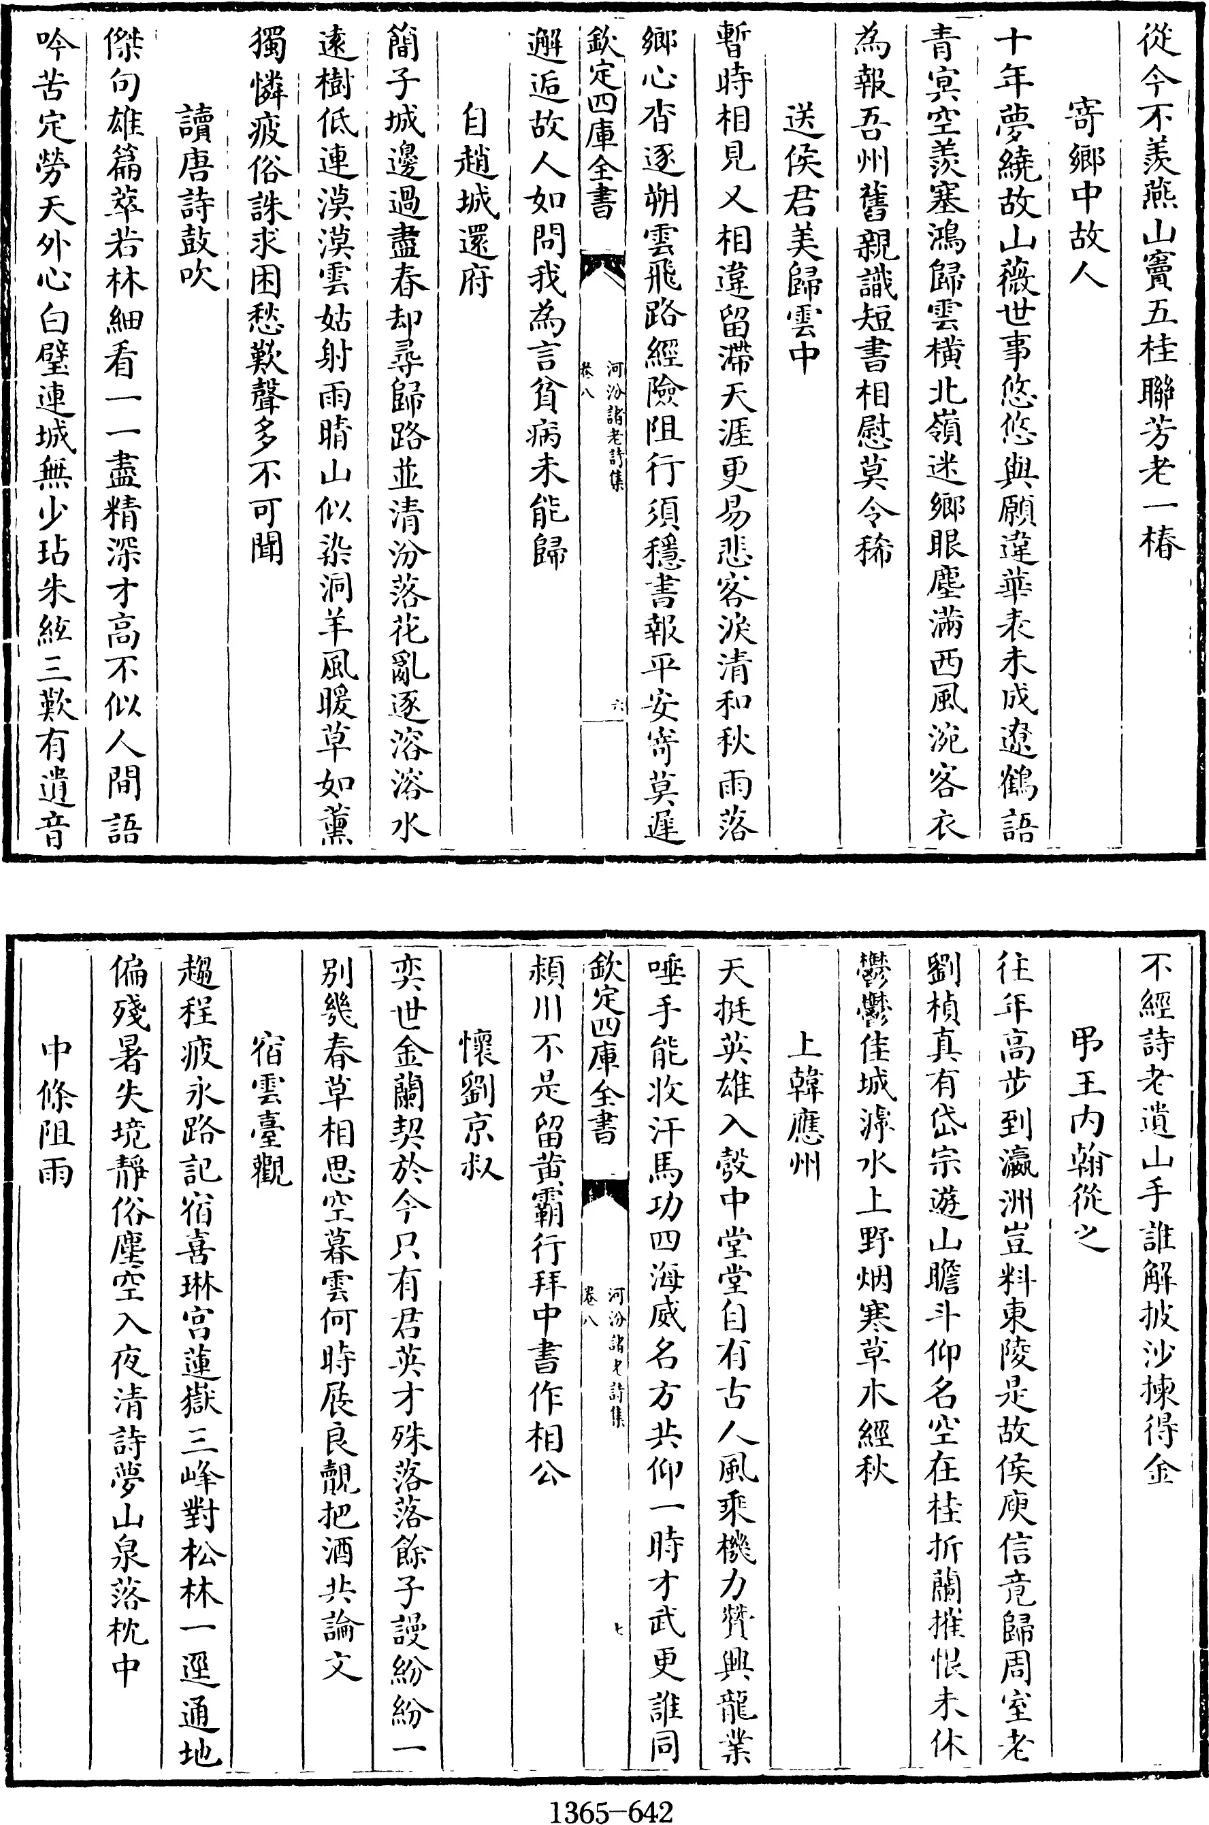 從今不羨燕山竇五桂聯芳老一椿
寄鄉中故人
十年夢繞故山薇世事悠悠與願違華表未成遼鶴語
青冥空羨塞鴻歸雲橫北嶺迷鄉眼塵滿西風涴客衣
為報吾州舊親識短書相慰莫令稀
送侯君美歸雲中
暫時相見又相違留滯天涯更易悲客淚清和秋雨落
鄉心杳逐朔雲飛路經險阻行須穩書報平安寄莫遲
欽定四庫全書
河汾諸老詩集
卷八
六
邂逅故人如問我為言貧病未能歸
自趙城還府
簡子城邊過盡春却尋歸路並清汾落花亂逐溶溶水
遠樹低連漠漠雲姑射雨晴山似染洞羊風暖草如薰
獨憐疲俗誅求困愁歎聲多不可聞
讀唐詩鼓吹
傑句雄篇萃若林細看一一盡精深才高不似人間語
吟苦定勞天外心白璧連城無少玷朱絃三歎有遺音
不經詩老遺山手誰解披沙揀得金
弔王内翰從之
往年高步到瀛洲豈料東陵是故侯庾信竟歸周室老
劉楨真有岱宗遊山瞻斗仰名空在桂折蘭摧恨未休
鬱鬱佳城滹水上野烟寒草木經秋
上韓應州
天挺英雄入彀中堂堂自有古人風乘機力贊興龍業
唾手能收汗馬功四海威名方共仰一時才武更誰同
欽定四庫全書
河汾諸老詩集
卷八
七
潁川不是留黃霸行拜中書作相公
懷劉京叔
奕世金蘭契於今只有君英才殊落落餘子謾紛紛一
別幾春草相思空暮雲何時展良覿把酒共論文
宿雲臺觀
趨程疲永路記宿喜琳宮蓮嶽三峰對松林一逕通地
偏殘暑失境靜俗塵空入夜清詩夢山泉落枕中
中條阻雨
1365-642